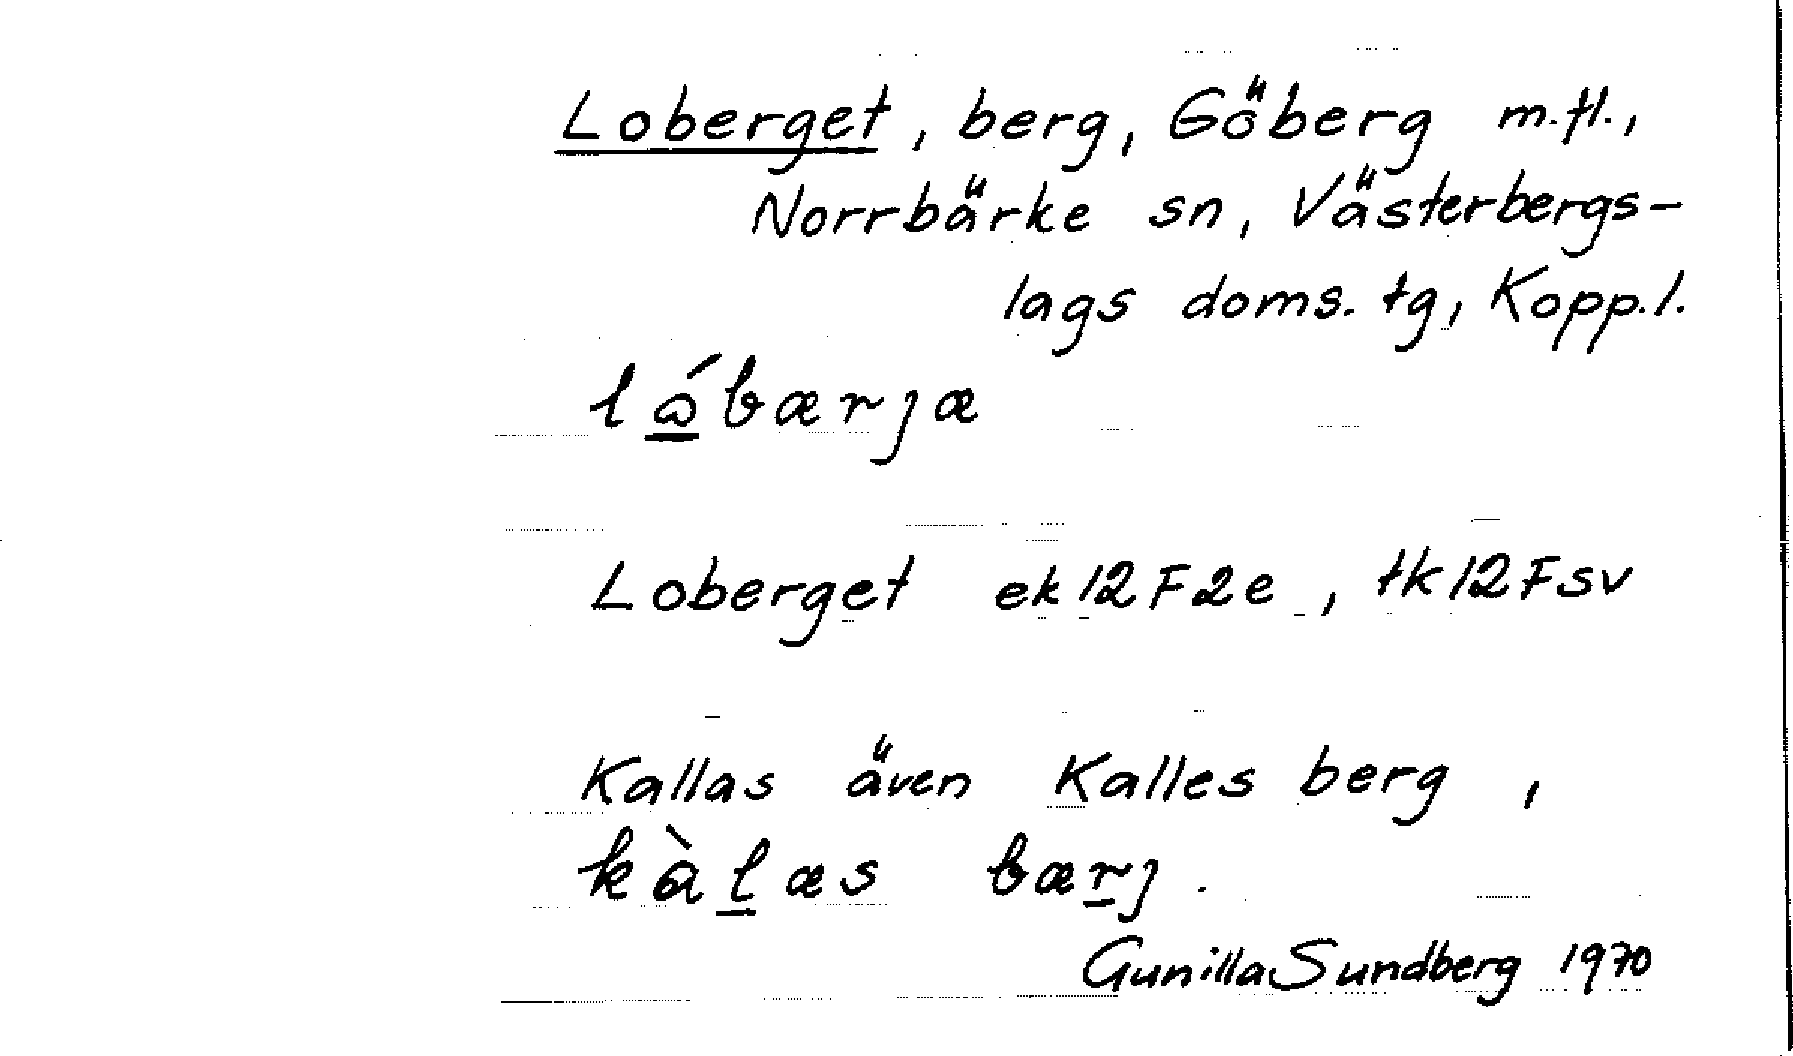 Loberget, berg, Göberg m.fl.,
Norrbärke sn, Västerbergs-
lags doms. tg, Kopp.l.
lóbærjæ
Loberget ek12F2e, tk12Fsv
Kallas även Kalles berg,
kàlæs bærj.
Gunilla Sundberg 1970